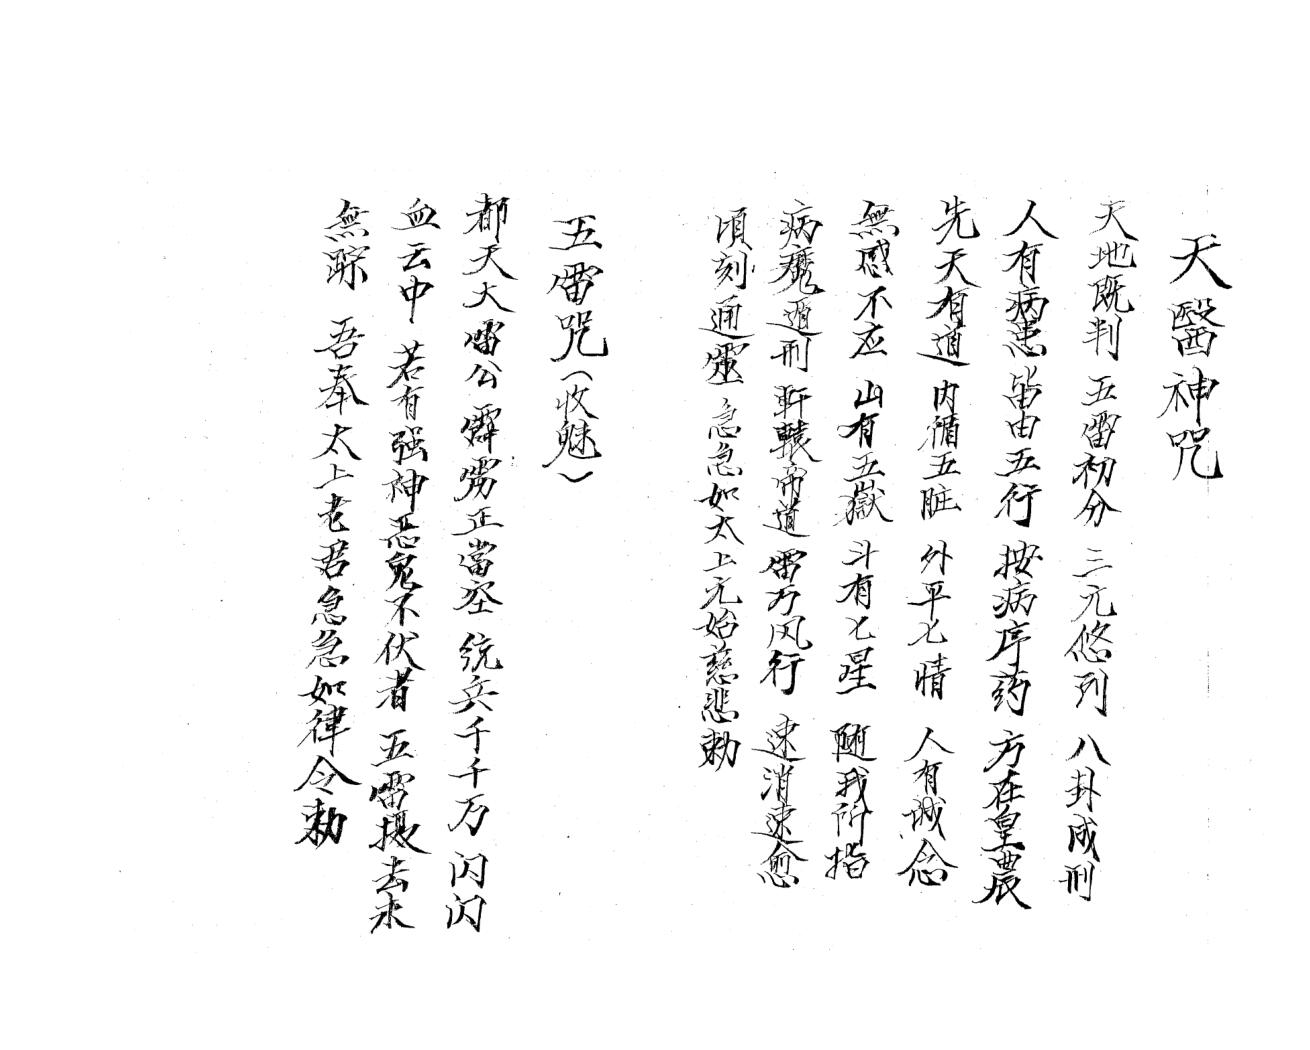 天醫神咒
天地既判 五雷初分 三元悠列 八卦成刑
人有病患 皆由五行 按病序药 方在皇農
先天有道 内循五脏 外平七睛 人有诚念
無感不应 山有五嶽 斗有七星 随我所指
病魔遁刑 軒轅帝道 雷万风行 速消速愈
頃刻通靈 急急如太上元始慈悲勅
五雷咒（收魅）
都天大雷公 霹雳正當空 统兵千千万 闪闪
血云中 若有强神恶鬼不伏者 五雷摄去永
無踪 吾奉太上老君急急如律令勅